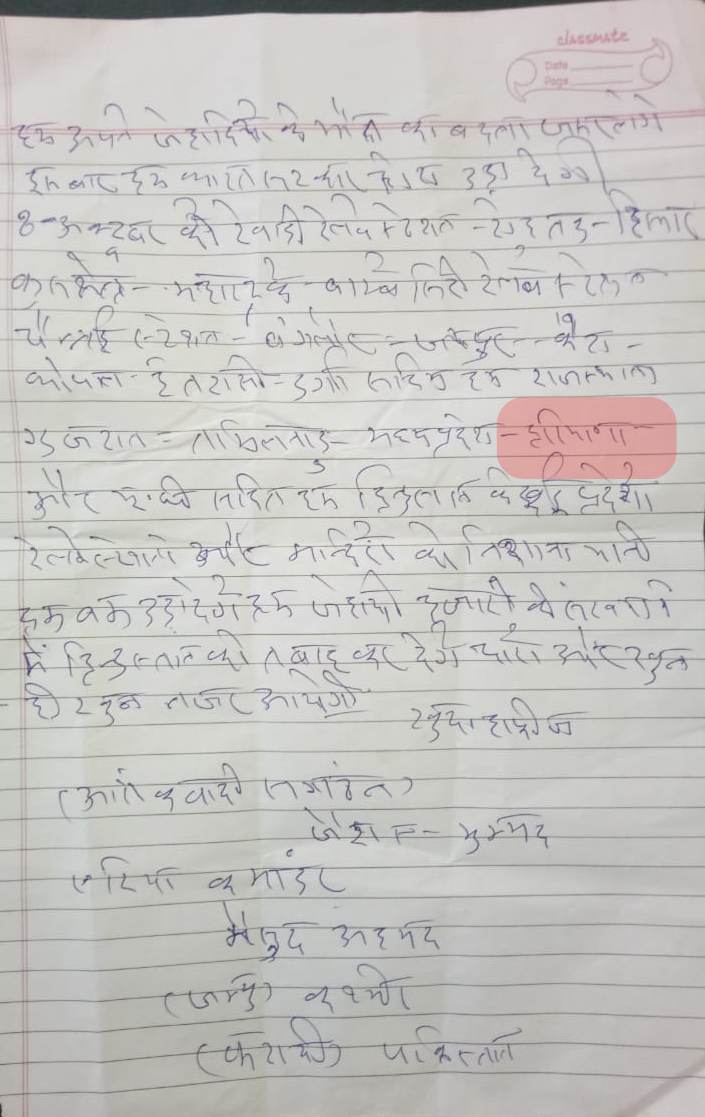 classmate
Date
Page
हम अपने जेहादियो के मौत का बदला जरूर लेगे
इस बार हम भारत सरकार को उड़ा देगे
8-अक्टूबर को रेवाडी रेलवे स्टेशन - रोहतक - हिसार
कुरुक्षेत्र - मुम्बई सिटी रेलवे स्टेशन
चैन्नई स्टेशन - बंगलौर - जयपुर -
भोपाल - इटारसी - सहित हम राजस्थान
गुजरात - तामिलनाडु - मध्यप्रदेश - हरियाणा
और सहित हम हिन्दुस्तान के कई प्रदेश
रेलवे स्टेशनो और मन्दिरो को निशाना
हम बम उड़ा देगे हम जेहादी हजारो की संख्या
में हिन्दुस्तान को तबाह कर देगे चारो और खुन
ही खुन नजर आयेगा
खुदा हाफीज
(आतंकवादी संगठन)
जैश ए- मुहम्मद
एरिया कमांडर
अहमद
(जम्मु) कश्मीर
(कराची) पाकिस्तान